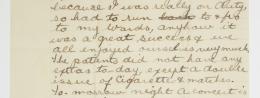 because I was really on duty,
so had to run back to & fro
to my wards, anyhow it
was a great success & we
all enjoyed ourselves very much.
The patients did not have any
extras to-day, except a double
issue of Cigarettes & matches.
To-morrow night a concert is